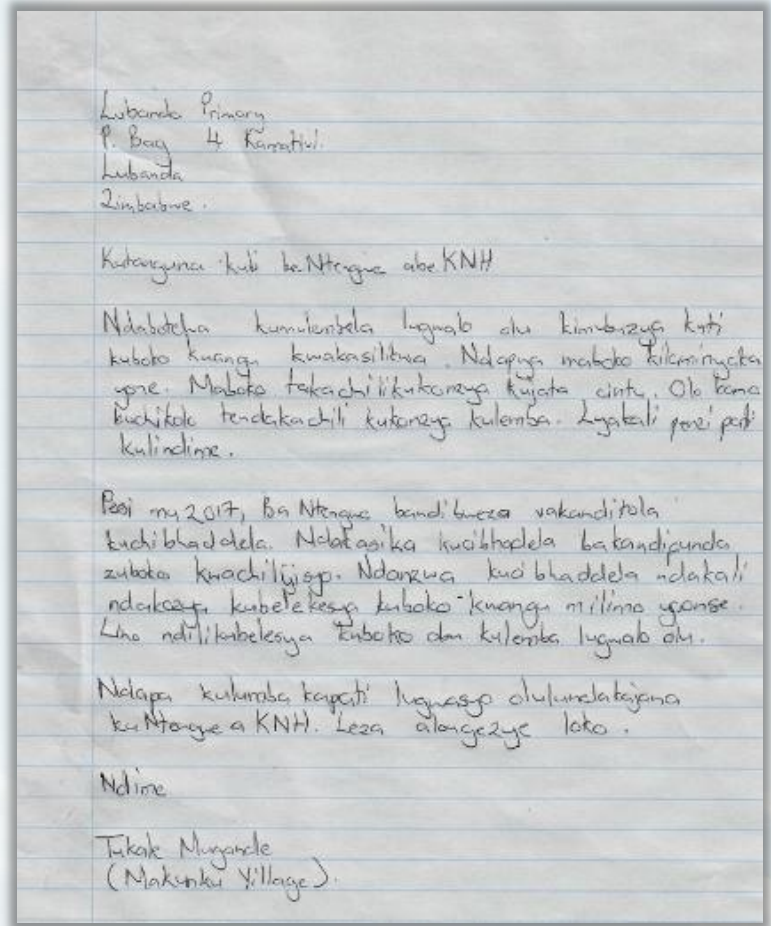 Lubanda Primary
P. Bag 4 Kamativi.
Lubanda
Zimbabwe.
Kutanguna kuli ba Ntengwe abe KNH
Ndabotelwa kumulembela lugwalo olu kimubuzya kuti
kuboko kwangu kwakasilitwa. Ndapya maboko
yone. Maboko takachili kukonzya kujata cintu. Olo
kuchikolo tendakachili kukonzya kulemba. Lyakali penzi pati
kulindime.
Pesi mu 2017, Ba Ntengwe bandibweza vakanditola
kuchibhaddela. Ndakasika kucibhadela bakandipanda
zuboko Ndanzwa kucibhaddela ndakali
kubelekesya kuboko kwangu milimo yoonse.
Lino ndilikubelesya kuboko oku kulemba lugwalo olu.
Ndapa kulumba kapati lugwasyo olulundakajana
ku Ntengwe a KNH. Leza alongezye loko.
Ndime
Tukak Mugande
(Makunku Village).